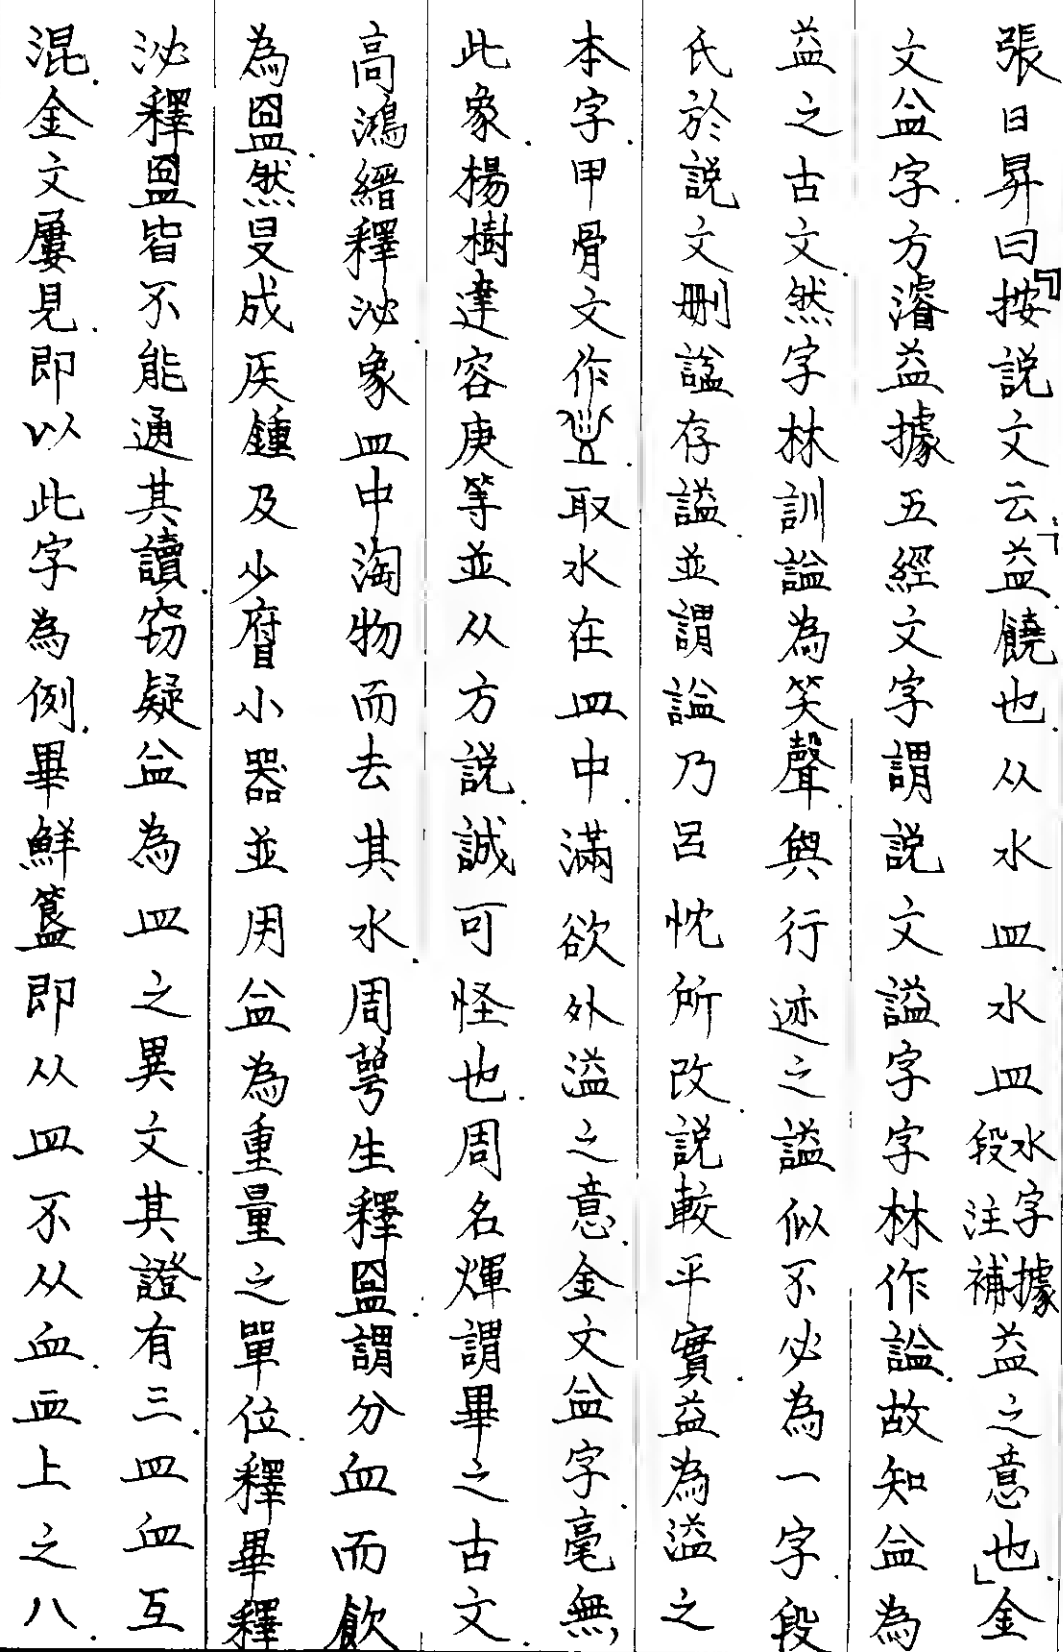 張日昇曰按說文云益饒也从水皿水皿水字據段注補益之意也金
文㿽字方濬益據五經文字謂說文謚字字林作諡故知㿽為
益之古文然字林訓謚為笑聲與行迹之謚似不必為一字段
氏於說文刪諡存謚並謂諡乃呂忱所改說較平實益為溢之
本字甲骨文作取水在皿中滿欲外溢之意金文㿽字毫無
此象楊樹達容庚等並从方說誠可怪也周名煇謂畢之古文
高鴻縉釋泌象皿中淘物而去其水周萼生釋㿽謂分血而飲
為盟然叟成医鍾及少𢊾小器並用㿽為重量之單位釋畢釋
泌釋盟皆不能通其讀窃疑㿽為皿之異文其證有三皿血互
混金文屢見即以此字為例畢鮮簋即从皿不从血血上之八